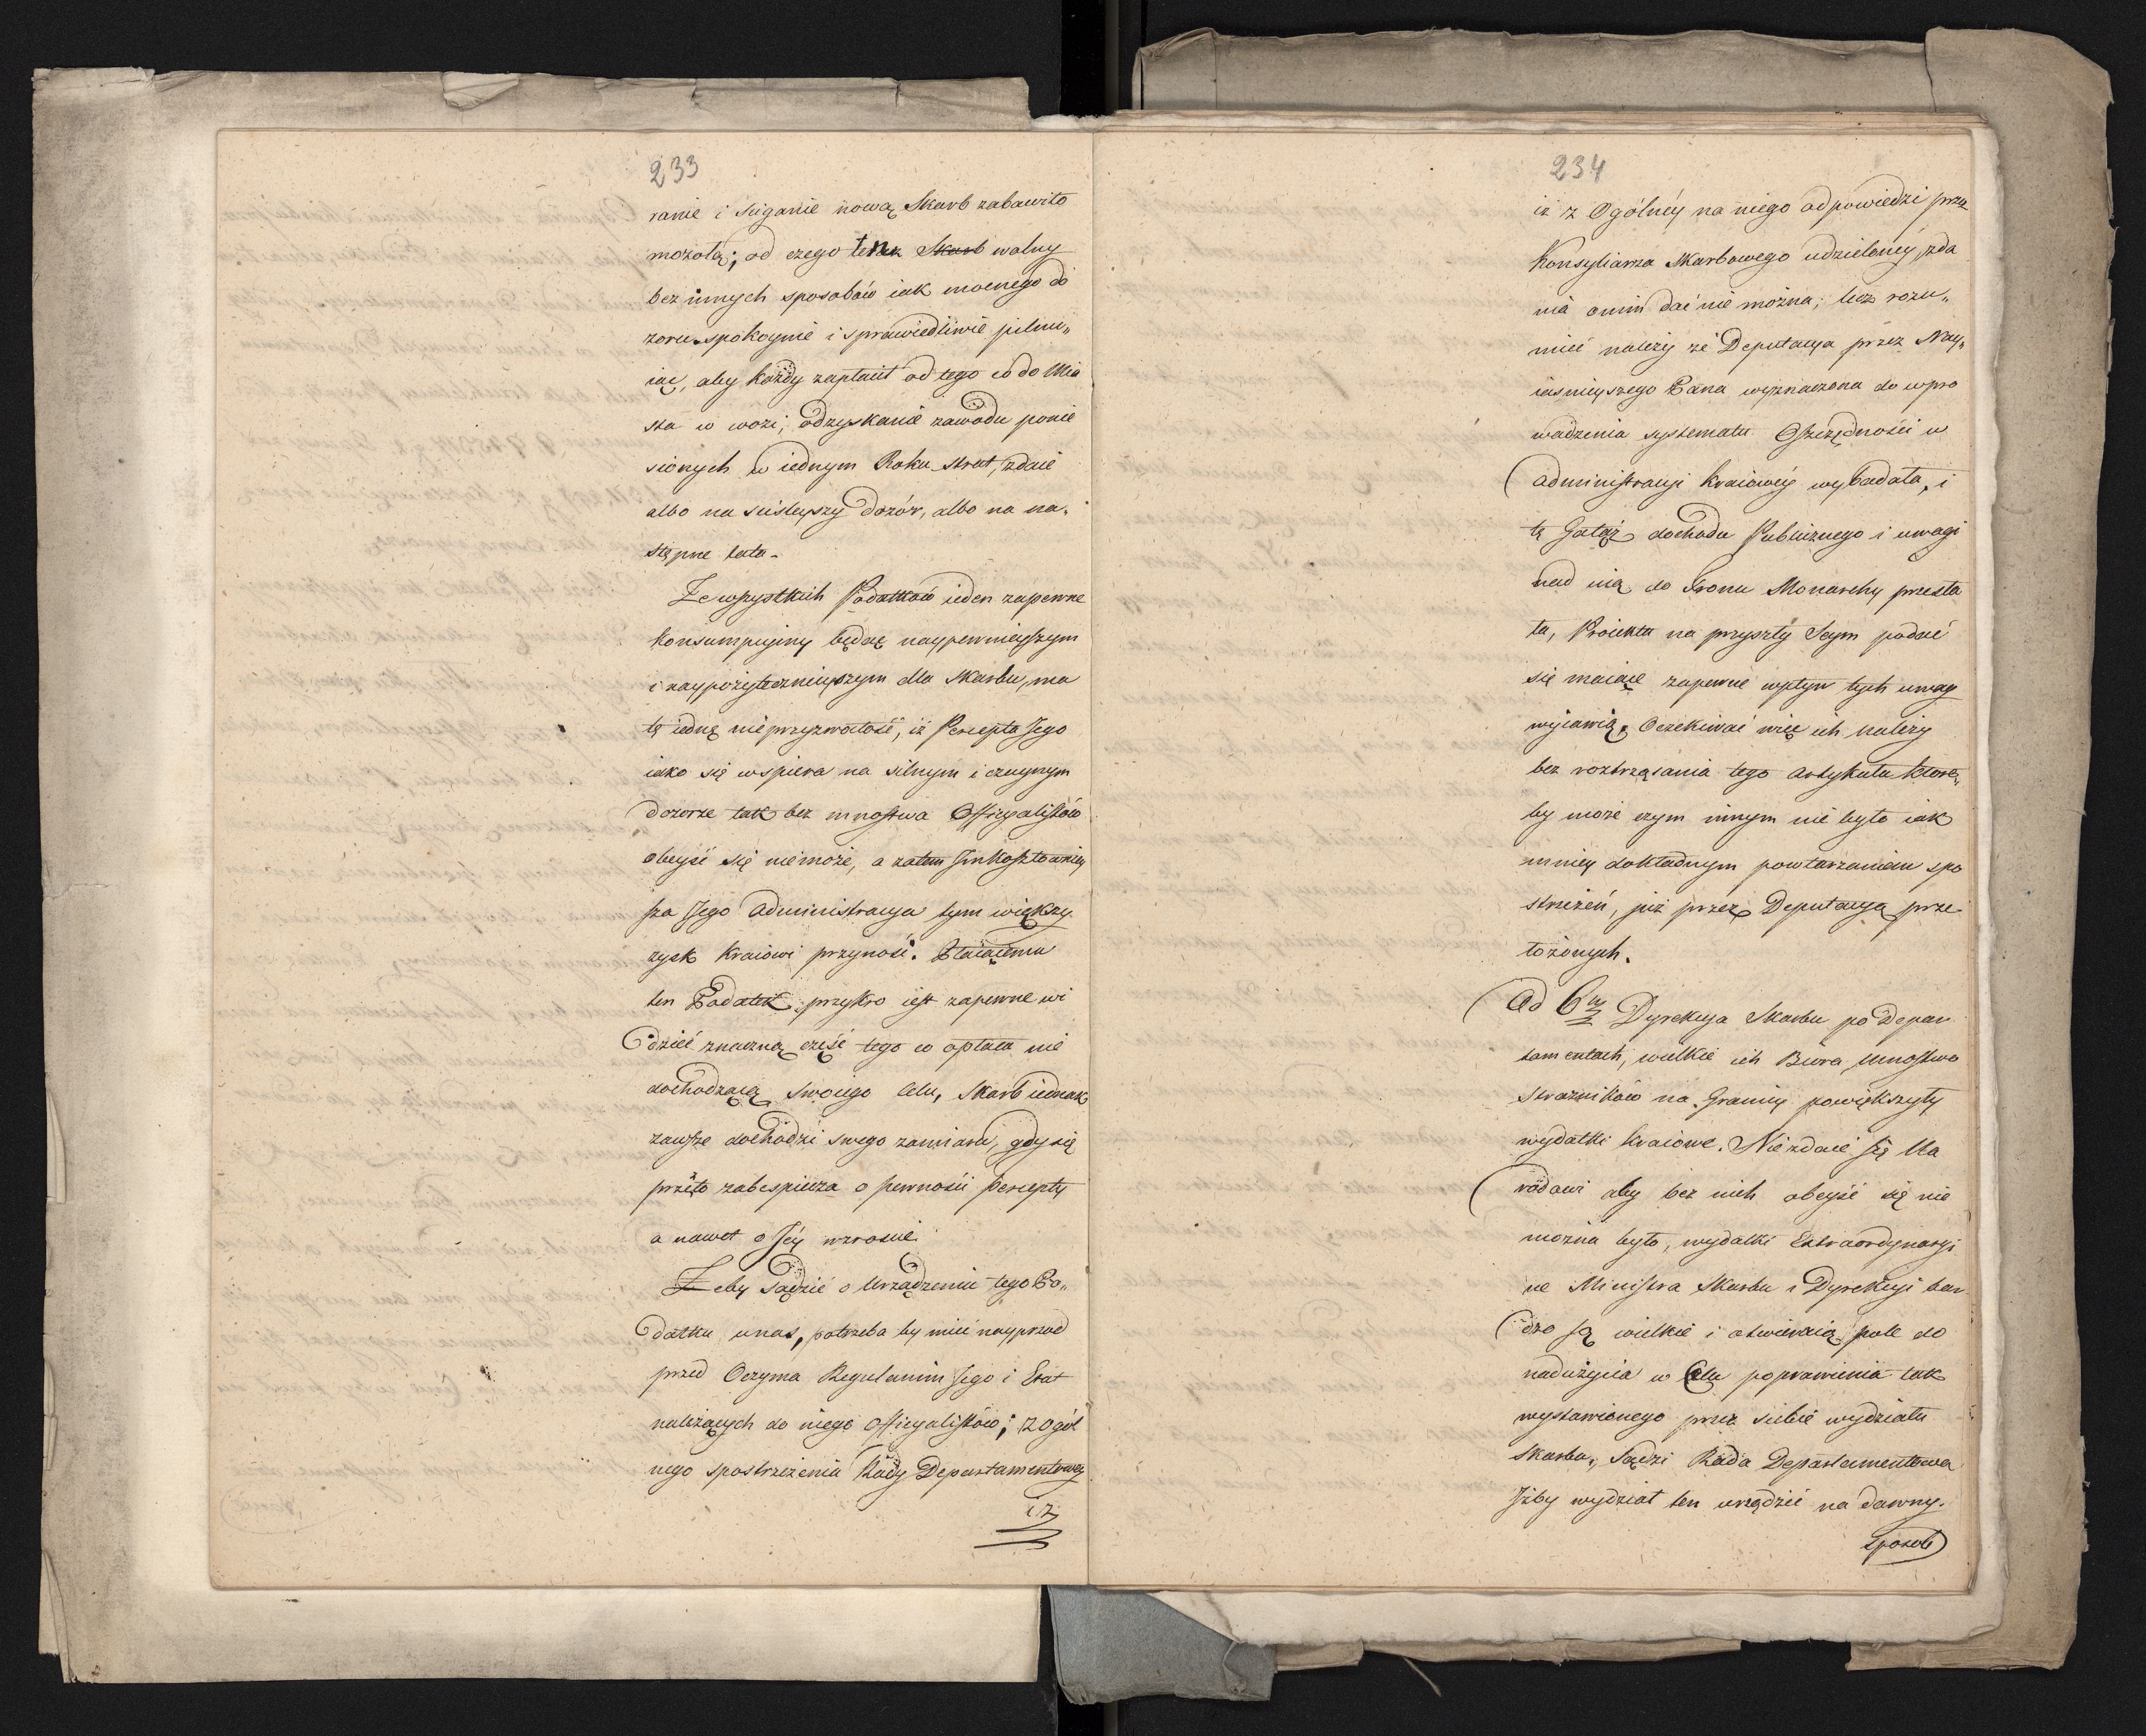 233
ranie i sciganie nową Skarb zabawiło
mozołą; od czego teraz Skarb wolny
bez innych sposobów iak mocnego do
zoru spokoynie i sprawiedliwie pilnu„
iąc, aby każdy zapłacił od tego co do Mia
sta w wozi; odzyskanie zawodu ponie
sionych w iednym Roku strat, zdaie
albo na scisleyszy dozór, albo na na„
stępne lata.
Ze wszystkich Podatków ieden zapewne
Konsumpcyiny będąc naypewnieyszym
i naypożytecznieyszym dla Skarbu, ma
tę iednę nieprzyzwoitość, iż Percepta Jego
iako się wspiera na silnym i czuynym
dozorze tak bez mnostwa Officyalistów
obeyść się niemoże, a zatem im kosztowniey
sza Jego Administracya tym większy
zysk Kraiowi przynosi. Płacącemu
ten Podatek przykro iest zapewne wi
dzieć znaczną część tego co opłaca nie
dochodzącą swoiego celu, Skarb iednak
zawsze dochodzi swego zamiaru, gdy się
przeto zabespiecza o pewności percepty
a nawet o Jéy wzroscie.
Żeby sądzić o Urządzeniu tego Po„
datku u nas, potrzeba by mieć nayprzod
przed Oczyma Regulamin Jego i Etat
należących do niego Officyalistów; z ogól
nego spostrzeżenia Rady Departamentowey
iż
234
iż z Ogólnéy na niego odpowiedzi przez
Konsyliarza Skarbowego udzielonéy, zda
nia o nim dać nie można; lecz rozu„
mieć należy że Deputacya przez Nay„
iasnieyszego Pana wyznaczona do wpro
wadzenia systematu Oszczędności w
Administracyi Kraiowéy wybadała, i
tę Gałąź dochodu Publicznego i uwagi
nad nią do Tronu Monarchy przesła
ła, Proiekta na przyszły Seym podać
się maiące zapewne wpływ tych uwag
wyiawią. Oczekiwać więc ich należy
bez roztrząsania tego Artykułu które„
by może czym innym nie było iak
mniey dokładnym powtarzaniem spo
strzeżeń, już przez Deputacyą prze
łożonych.
Ad 6m Dyrekcya Skarbu po Depar
tamentach, wielkie ich Biura, Mnostwo
Strazników na Granicy powiększyły
wydatki kraiowe. Nie zdaie się Na
rodowi aby bez nich obeyść się nie
można było, wydatki Extraordynaryi
ne Ministra Skarbu i Dyrekcyi bar
dzo są wielkie i otwieraią pole do
nadużycia w Celu poprawienia tak
wystawionego przez siebie wydziału
Skarbu, Sądzi Rada Departamentowa
Jżby wydział ten urządzić na dawny
sposob